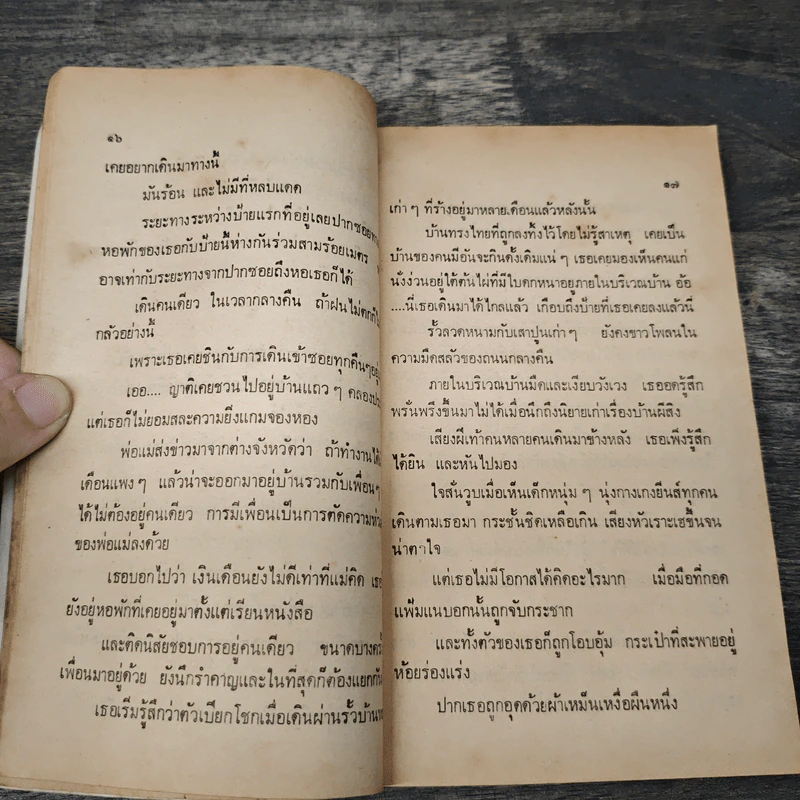 ๑๖
เคยอยากเดินมาทางนี้
มันร้อน และไม่มีที่หลบแดด
ระยะทางระหว่างป้ายแรกที่อยู่เลยปากซอย
หอพักของเธอกับป้ายนี้ห่างกันร่วมสามร้อยเมตร
อาจเท่ากับระยะทางจากปากซอยถึงหอเธอก็ได้
เดินคนเดียว ในเวลากลางคืน ถ้าฝนไม่ตกก็
กลัวอย่างนี้
เพราะเธอเคยชินกับการเดินเข้าซอยทุกคืนๆ
เออ.... ญาติเคยชวนไปอยู่บ้านแถว ๆ คลอง
แต่เธอก็ไม่ยอมสละความยิ่งแกมจองหอง
พ่อแม่ส่งข่าวมาจากต่างจังหวัดว่า ถ้าทำงานได้
เดือนแพง ๆ แล้วน่าจะออกมาอยู่บ้านรวมกับเพื่อนๆ
ได้ไม่ต้องอยู่คนเดียว การมีเพื่อนเป็นการตัดความ
ของพ่อแม่ลงด้วย
เธอบอกไปว่า เงินเดือนยังไม่ดีเท่าที่แม่คิด
ยังอยู่หอพักที่เคยอยู่มาตั้งแต่เรียนหนังสือ
และติดนิสัยชอบการอยู่คนเดียว ขนาดบาง
เพื่อนมาอยู่ด้วย ยังนึกรำคาญและในที่สุดก็ต้องแยกกัน
เธอเริ่มรู้สึกว่าตัวเปียกโชกเมื่อเดินผ่านรั้วบ้าน
๑๗
เก่า ๆ ที่ร้างอยู่มาหลายเดือนแล้วหลังนั้น
บ้านทรงไทยที่ถูกลงทิ้งไว้โดยไม่รู้สาเหตุ เคยเป็น
บ้านของคนมีอันจะกินดั้งเดิมแน่ ๆ เธอเคยมองเห็นคนแก่
นั่งง่วนอยู่ใต้ต้นไผ่ที่มีใบดกหนาอยู่ภายในบริเวณบ้าน อ้อ
....นี่เธอเดินมาได้ไกลแล้ว เกือบถึงป้ายที่เธอเคยลงแล้วนี่
รั้วลวดหนามกับเสาปูนเก่า ๆ ยังคงขาวโพลนใน
ความมืดสลัวของถนนกลางคืน
ภายในบริเวณบ้านมืดและเงียบวังเวง เธออดรู้สึก
พรั่นพรึงขึ้นมาไม่ได้เมื่อนึกถึงนิยายเก่าเรื่องบ้านผีสิง
เสียงฝีเท้าคนหลายคนเดินมาข้างหลัง เธอเพิ่งรู้สึก
ได้ยิน และหันไปมอง
ใจสั่นวูบเมื่อเห็นเด็กหนุ่ม ๆ นุ่งกางเกงยีนส์ทุกคน
เดินตามเธอมา กระชั้นชิดเหลือเกิน เสียงหัวเราะเฮขึ้นจน
น่าตาใจ
แต่เธอไม่มีโอกาสได้คิดอะไรมาก เมื่อมือที่กอด
แฟ้มแนบอกนั้นถูกจับกระชาก
และทั้งตัวของเธอก็ถูกโอบอุ้ม กระเป๋าที่สะพายอยู่
ห้อยร่องแร่ง
ปากเธอถูกอุดด้วยผ้าเหม็นเหงื่อผืนหนึ่ง